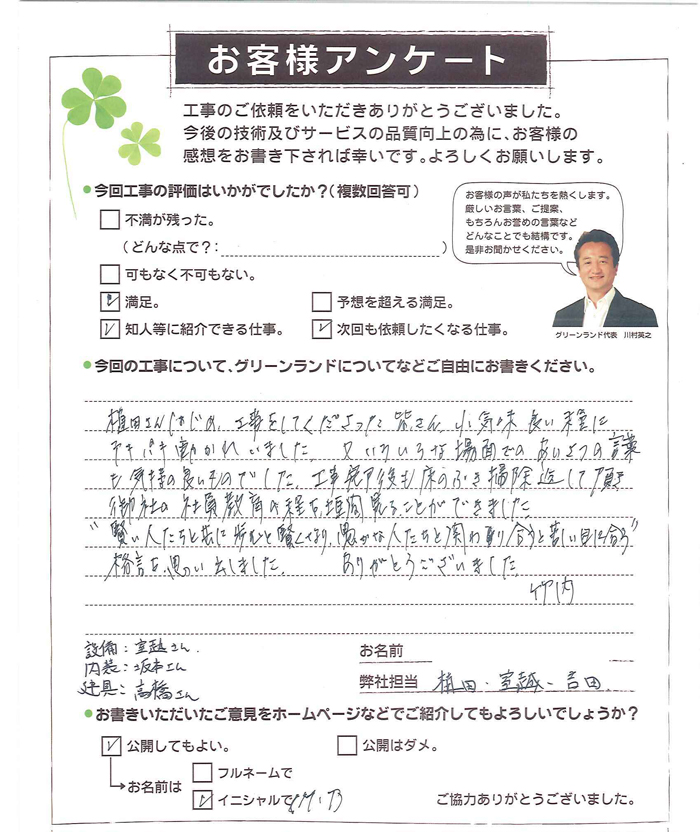 お客様アンケート
工事のご依頼をいただきありがとうございました。
今後の技術及びサービスの品質向上の為に、お客様の
感想をお書き下されば幸いです。よろしくお願いします。
今回工事の評価はいかがでしたか?(複数回答可)
不満が残った。
(どんな点で?: )
可もなく不可もない。
満足。
予想を超える満足。
知人等に紹介できる仕事。
次回も依頼したくなる仕事。
お客様の声が私たちを熱くします。
厳しいお言葉、ご提案、
もちろんお誉めの言葉など
どんなことでも結構です。
是非お聞かせください。
グリーンランド代表 川村英之
今回の工事について、グリーンランドについてなどご自由にお書きください。
植田さんはじめ、工事をしてくださった皆さん、小気味良い程に
テキパキ動かれていました。又いろいろな場面でのあいさつの言葉
も気持の良いものでした。工事完了後も床のふき掃除迄して頂き
御社の社員教育の程を垣間見ることができました
"賢い人たちと共に歩むと賢くなり、愚かな人たちと関わり合うと苦い目に合う"
格言を思い出しました。 ありがとうございました
竹内
設備:室越さん
内装:坂本さん
建具:高橋さん
お名前
弊社担当 植田・室越・吉田
お書きいただいたご意見をホームページなどでご紹介してもよろしいでしょうか?
公開してもよい。
公開はダメ。
お名前は
フルネームで
イニシャルで
ご協力ありがとうございました。